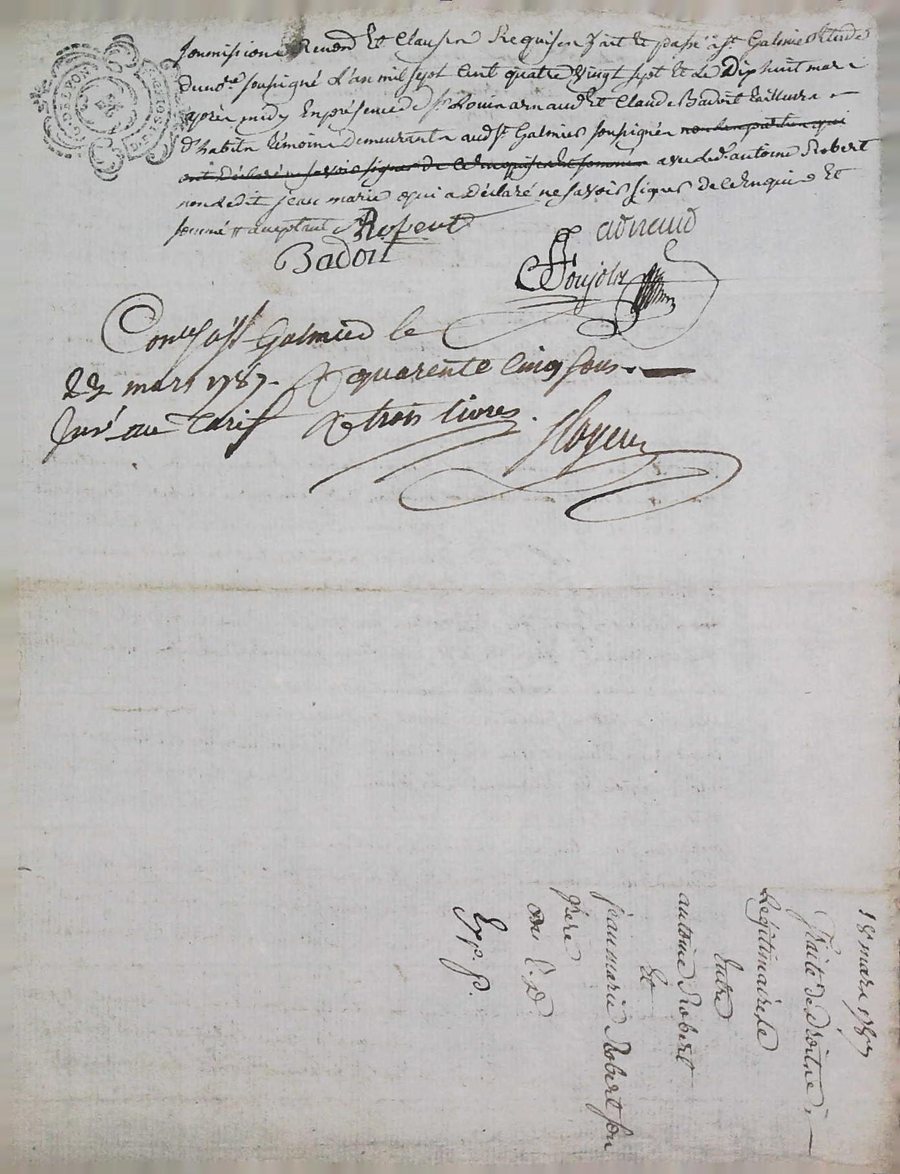 soumissions Renond Et Clauses Requises fait et passé a st Galmier Etude
du no.re soussigné L'an mil sept Cent quatre vingt sept Et le Dixhuit mars
après midy En présence de sr Louis arnaud Et Claude Badoit tailleurs
d'habits témoins demeurants aud. st Galmier soussignés non les parties qui
ont déclaré ne savoir signer de ce enquises et sommées avec led. antoine Robert
non ledit jean marie qui a déclaré ne savoir signer de ce enquis Et
sommé acceptant Robert
Badoit
arnaud
Poujols
Con.lé à st Galmier le
22 mars 1787. R quarente cinq sous.
Ins.é au Tarif R trois livres.
18 mars 1787
Traité de droits
Legitimaires
Entre
antoine Robert
Et
jean marie Robert son
frere
Exp. P.